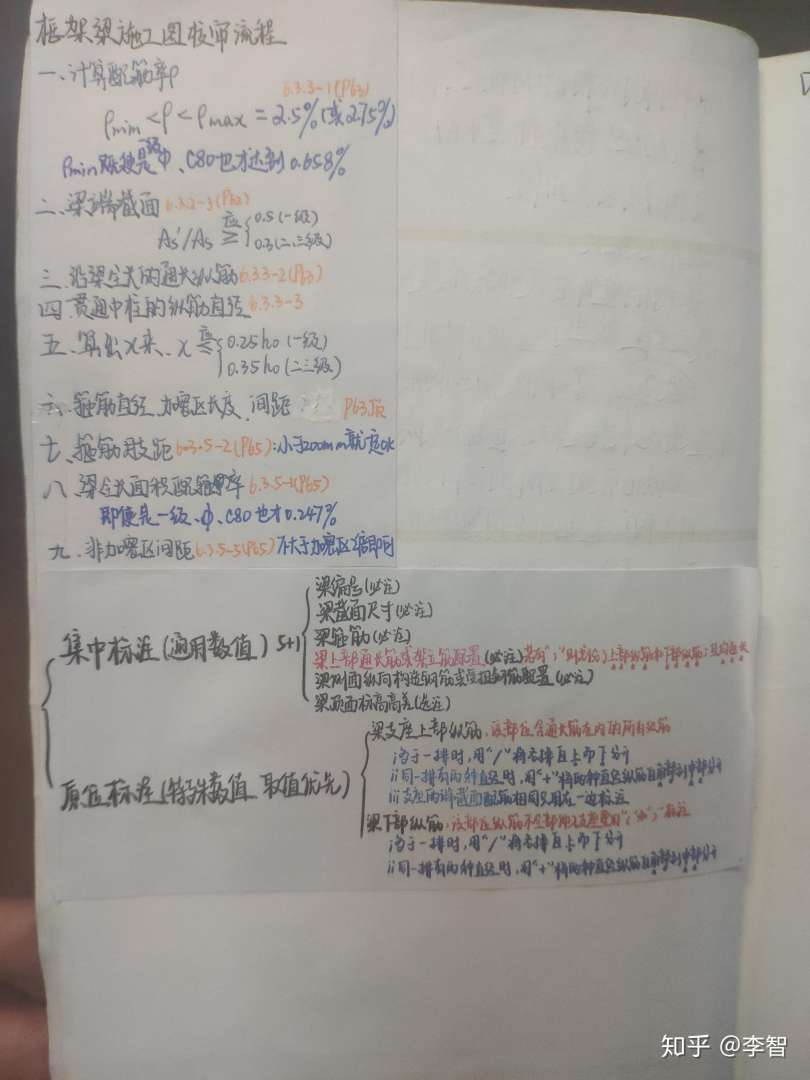 框架梁施工图校审流程
一、计算配筋率ρ
6.3.3-1(P63)
ρmin<ρ<ρmax=2.5%(或2.75%)
ρmin既使是一级、ф、C80也才达到0.658%
二、梁端截面6.3.2-3(P62)
As'/As 应≥{0.5(一级)
0.3(二、三级)
三、沿梁全长的通长纵筋6.3.3-2(P63)
四、贯通中柱的纵筋直径6.3.3-3
五、算出x来、x应≤{0.25ho(一级)
0.35ho(二三级)
六、箍筋直径、加密区长度、间距 P63顶
七、箍筋肢距6.3.5-2(P65):小于200mm就一定ok
八、梁全长面积配箍率6.3.5-1(P65)
即使是一级、ф、C80也才0.247%
九、非加密区间距6.3.5-5(P65)不大于加密区2倍即可
集中标注(通用数值)5+1
梁编号(必注)
梁截面尺寸(必注)
梁箍筋(必注)
梁上部通长筋或架立筋配置(必注)若有“;”则表示上部纵筋和下部纵筋;且均通长
梁侧面纵向构造钢筋或受扭钢筋配置(必注)
梁顶面标高高差(选注)
原位标注(特殊数值、取值优先)
梁支座上部纵筋:该部位含通长筋在内的所有纵筋
i多于一排时,用“/”将各排自上而下分
ii同一排有两种直径时,用“+”将两种直径纵筋自前部到中部分
iii支座两端截面配筋相同只用在一边标注
梁下部纵筋:该部位纵筋不全部伸入支座要用
i多于一排时,用“/”将各排自上而下分
ii同一排有两种直径时,用“+”将两种直径纵筋自前部到中部分
知乎 @李智